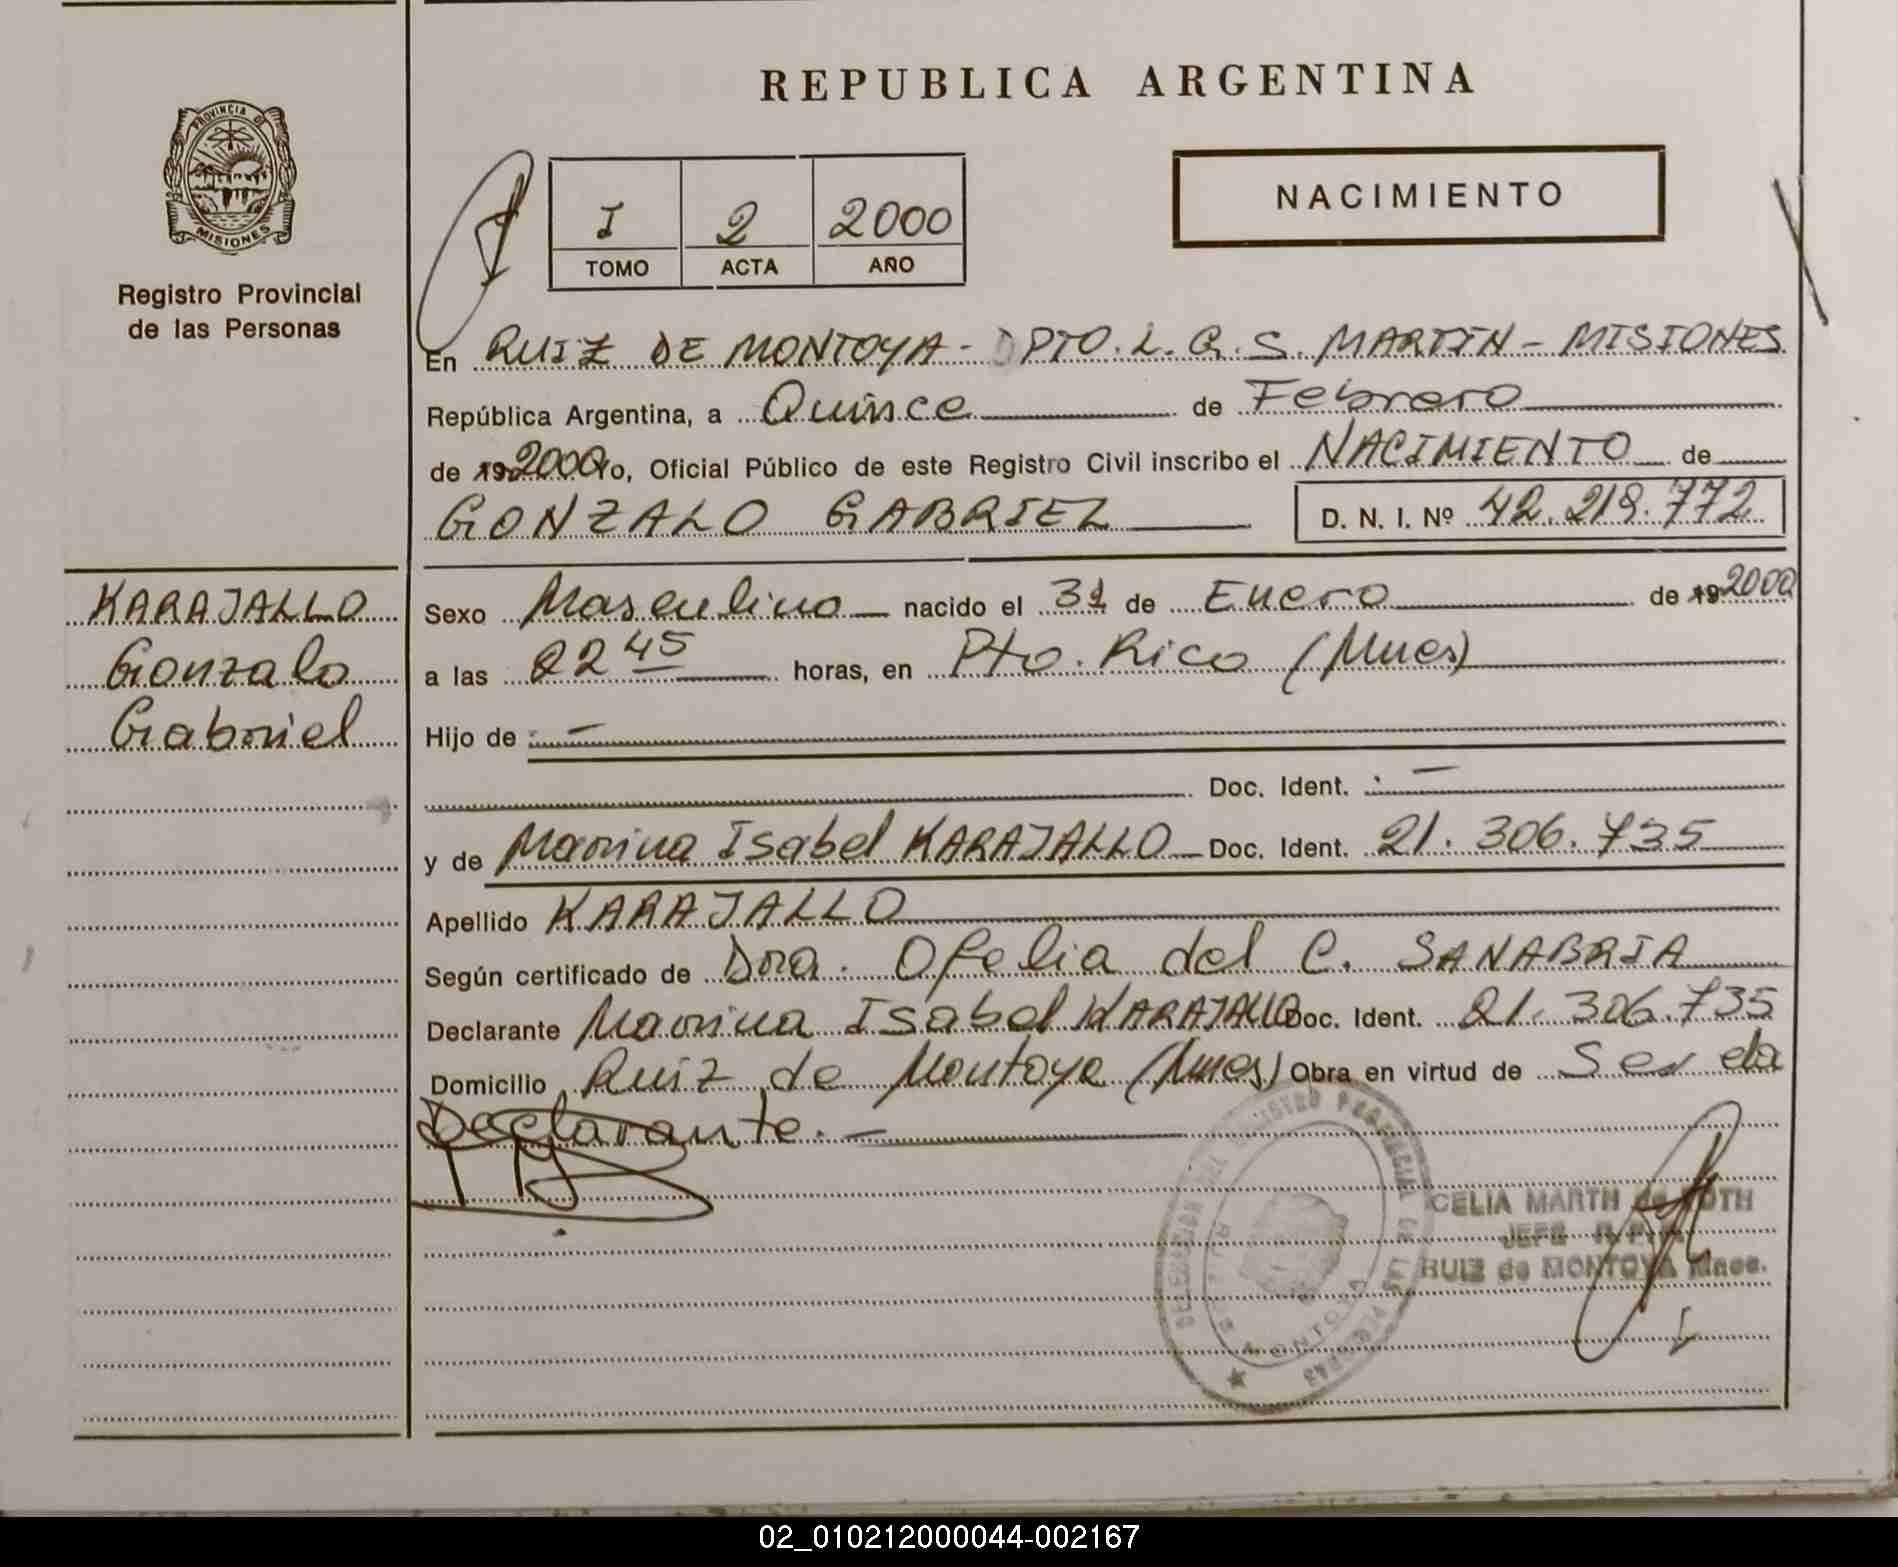 REPUBLICA ARGENTINA
PROVINCIA DE
MISIONES
Registro Provincial
de las Personas
I 2 2000
TOMO ACTA AÑO
NACIMIENTO
En RUIZ DE MONTOYA - DPTO. L. G. S. MARTIN - MISIONES
República Argentina, a Quince de Febrero
de 19 2000 Yo, Oficial Público de este Registro Civil inscribo el NACIMIENTO de
GONZALO GABRIEL D. N. I. Nº 42.218.772
KARAJALLO
Gonzalo
Gabriel
Sexo Masculino nacido el 31 de Enero de 19 2000
a las 22 45 horas, en Pto. Rico (Mnes)
Hijo de : —
Doc. Ident. : —
y de Marina Isabel KARAJALLO Doc. Ident. 21.306.735
Apellido KARAJALLO
Según certificado de Dra. Ofelia del C. SANABRIA
Declarante Marina Isabel KARAJALLO Doc. Ident. 21.306.735
Domicilio Ruiz de Montoya (Mnes) Obra en virtud de Ser la
Declarante. —
CELIA MARTH de ROTH
JEFE R. P. P.
RUIZ de MONTOYA Mnes.
02_010212000044-002167